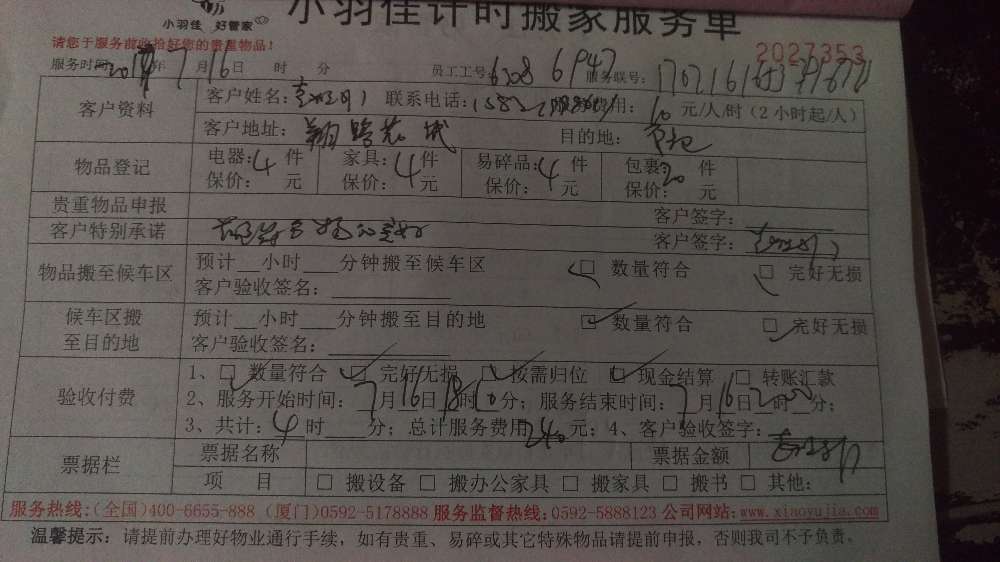 小羽佳 好管家
小羽佳计时搬家服务单
请您于服务前收拾好您的贵重物品!
2027353
服务时间: 年 7 月 16 日 时 分 员工工号: 6308 6947 服务联号:
客户资料 客户姓名: 联系电话: 费用: 元/人/时(2小时起/人)
客户地址: 目的地:
物品登记 电器: 4 件 家具: 4 件 易碎品: 4 件 包裹: 20 件
保价: 元 保价: 元 保价: 元 保价: 元
贵重物品申报 客户签字:
客户特别承诺 客户签字:
物品搬至候车区 预计__小时___分钟搬至候车区 □ 数量符合 □ 完好无损
客户验收签名:
候车区搬至目的地 预计__小时___分钟搬至目的地 □ 数量符合 □ 完好无损
客户验收签名:
验收付费 1、□ 数量符合 □ 完好无损 □ 按需归位 □ 现金结算 □ 转账汇款
2、服务开始时间: 7月16日18时 分; 服务结束时间: 7月16日 时 分;
3、共计: 4时 分; 总计服务费用 240 元; 4、客户验收签字:
票据栏 票据名称 票据金额
项 目 □ 搬设备 □ 搬办公家具 □ 搬家具 □ 搬书 □ 其他:
服务热线:(全国)400-6655-888 (厦门)0592-5178888 服务监督热线:0592-5888123 公司网站:www.xiaoyujia.com
温馨提示: 请提前办理好物业通行手续, 如有贵重、易碎或其它特殊物品请提前申报, 否则我司不予负责。